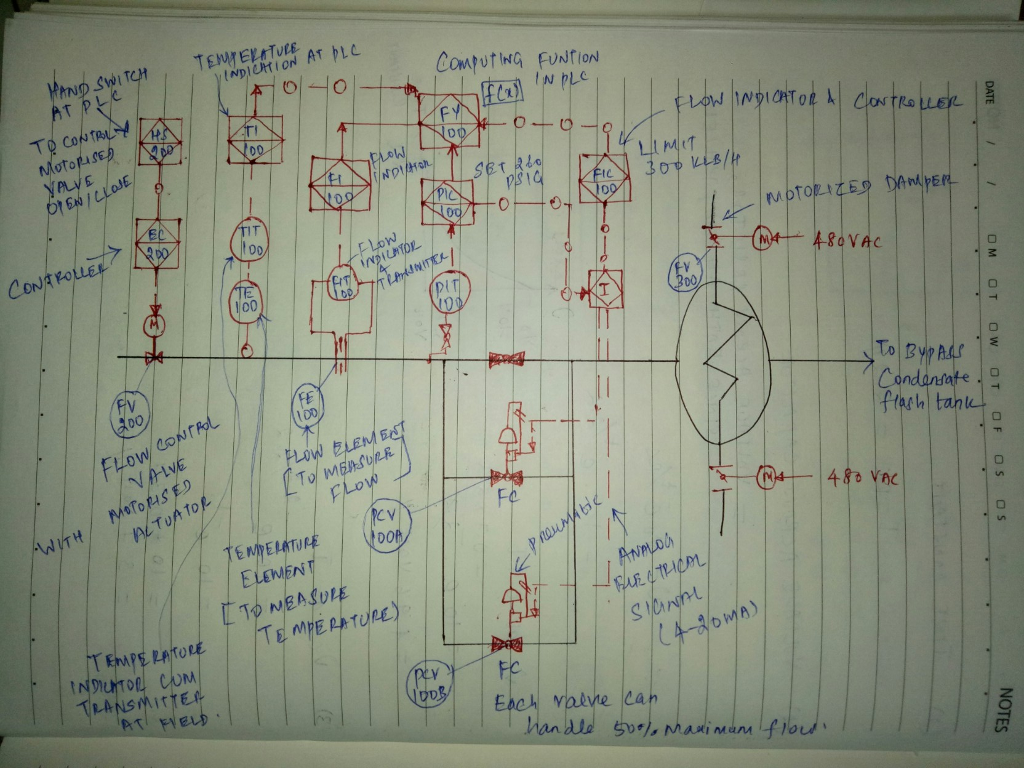 HAND SWITCH
AT PLC
TO CONTROL
MOTORISED
VALVE
OPEN/CLOSE
TEMPERATURE
INDICATION AT PLC
COMPUTING FUNTION
IN PLC
f(x)
FLOW INDICATOR & CONTROLLER
LIMIT
300 KLB/H
HS
200
TI
100
FY
100
FI
100
FLOW
INDICATOR
PIC
100
SET 260
PSIG
FIC
100
MOTORIZED DAMPER
M
480VAC
FV
300
EC
200
CONTROLLER
TIT
100
TE
100
FIT
100
FLOW
INDICATOR
&
TRANSMITTER
PIT
100
I
M
FV
200
FLOW CONTROL
VALVE
WITH MOTORISED
ACTUATOR
FE
100
FLOW ELEMENT
[TO MEASURE
FLOW]
To Bypass
Condensate
flash tank
M
480 VAC
FC
PCV
100A
pneumatic
ANALOG
ELECTRICAL
SIGNAL
(4-20MA)
TEMPERATURE
ELEMENT
[TO MEASURE
TEMPERATURE)
TEMPERATURE
INDICATOR CUM
TRANSMITTER
AT FIELD
PCV
100B
FC
Each valve can
handle 50% Maximum flow.
DATE
M T W T F S S
NOTES